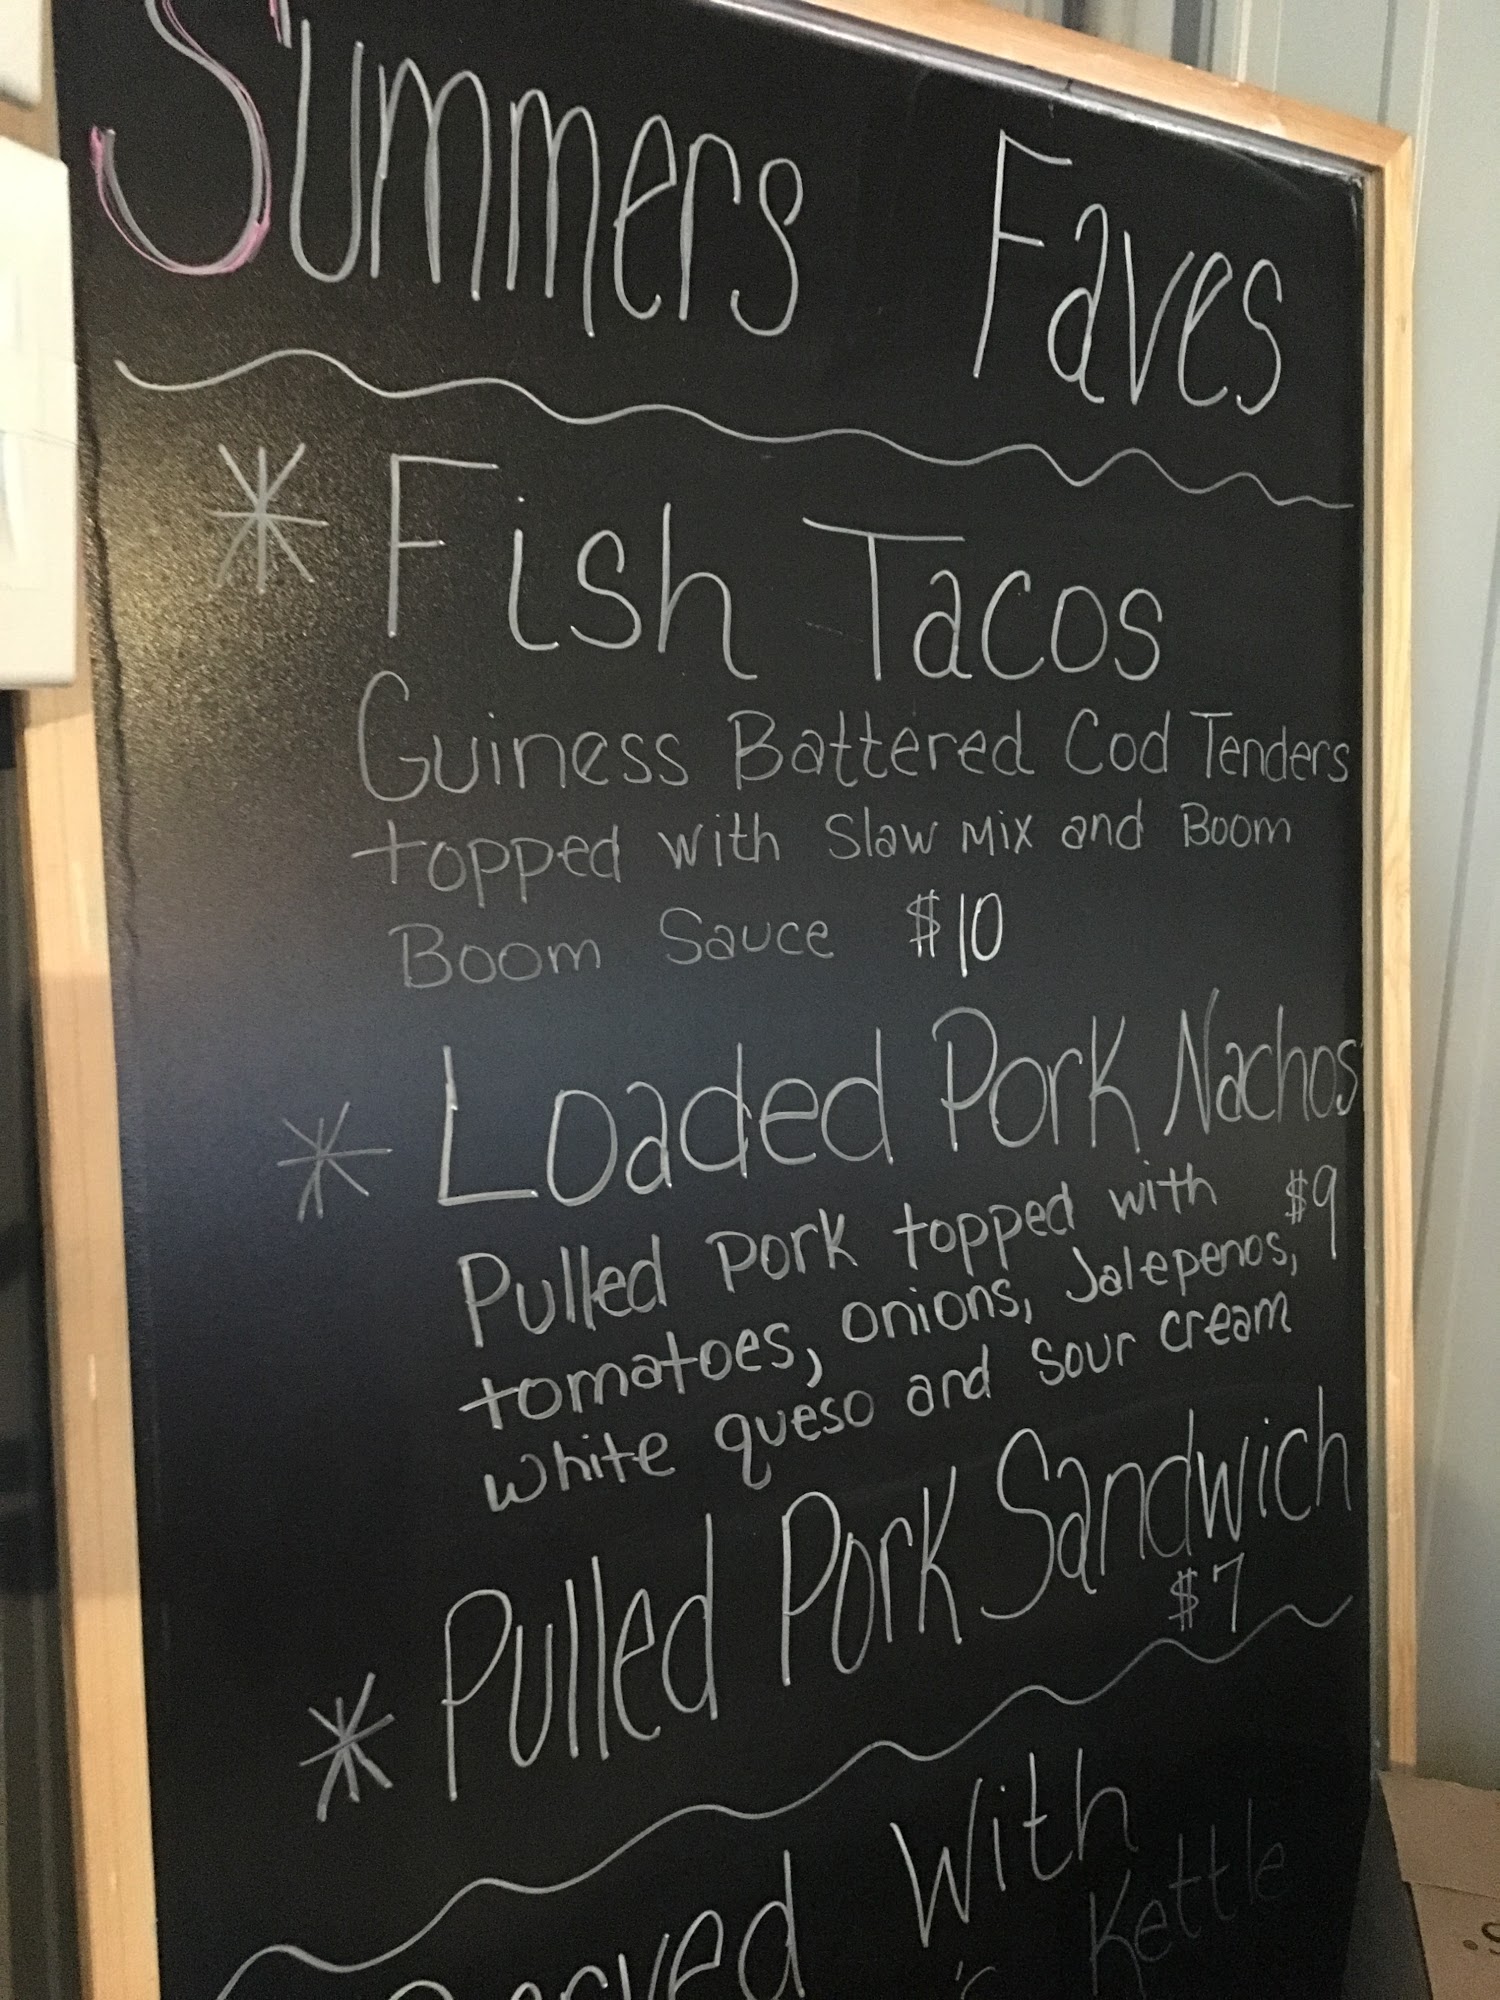 Summers Faves
* Fish Tacos
Guiness Battered Cod Tenders
topped with Slaw Mix and Boom
Boom Sauce $10
* Loaded Pork Nachos
Pulled Pork topped with $9
tomatoes, onions, Jalepenos,
white queso and sour cream
* Pulled Pork Sandwich
$7
Served with
Kettle